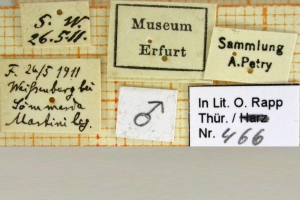 S. W.
26.5.11.
Museum
Erfurt
Sammlung
A. Petry
F. 24/5 1911
Weißenburg bei
Sömmerda
Martini leg.
♂
In Lit. O. Rapp
Thür. / Harz
Nr. 466